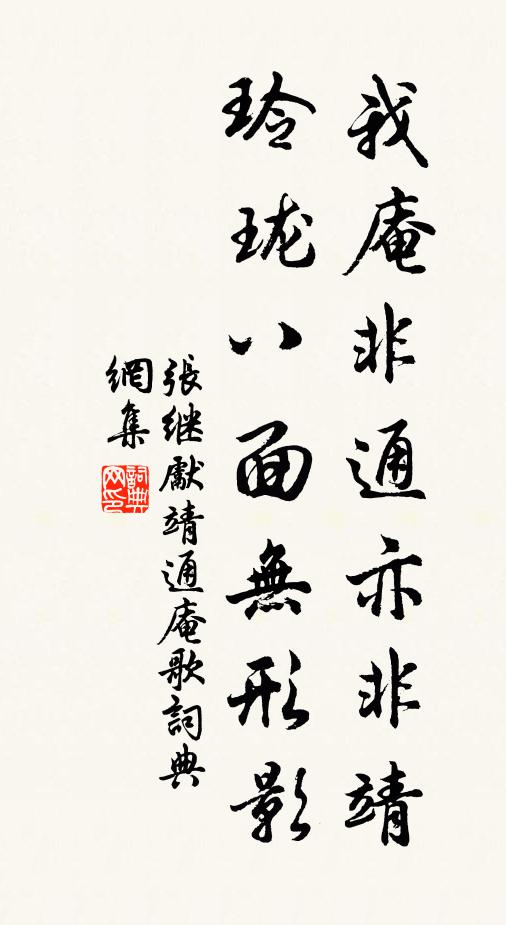 我庵非通亦非靖
玲珑八面無形影
張继獻靖通庵歌詞典
網集
詞典
网印